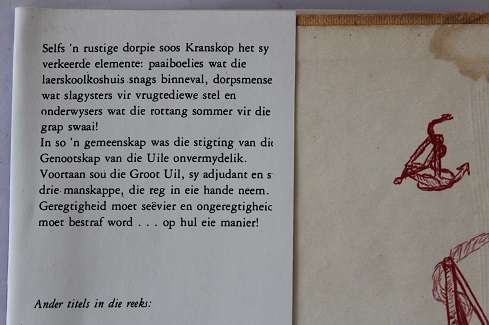 Selfs 'n rustige dorpie soos Kranskop het sy
verkeerde elemente: paaiboelies wat die
laerskoolkoshuis snags binneval, dorpsmense
wat slagysters vir vrugtediewe stel en
onderwysers wat die rottang sommer vir die
grap swaai!
In so 'n gemeenskap was die stigting van die
Genootskap van die Uile onvermydelik.
Voortaan sou die Groot Uil, sy adjudant en s
drie manskappe, die reg in eie hande neem.
Geregtigheid moet seëvier en ongeregtigheid
moet bestraf word . . . op hul eie manier!
Ander titels in die reeks: